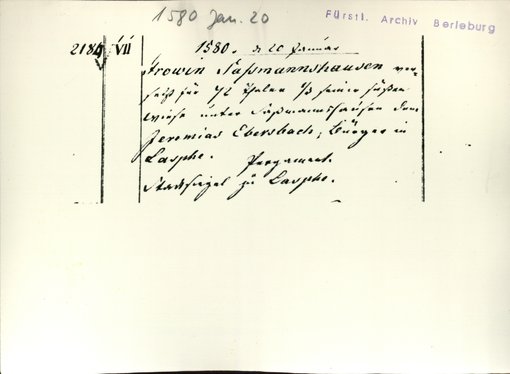 1580 Jan. 20
Fürstl. Archiv Berleburg
218 VII 1580. d 20 Januar
Frowin Saßmannshausen ver-
setzt für 72 Thaler 1/3 seiner süßen
Wiese unter Saßmannshausen dem
Jeremias Ebersbach, Bürger in
Laasphe. Pergament.
Stadtsiegel zu Laasphe.